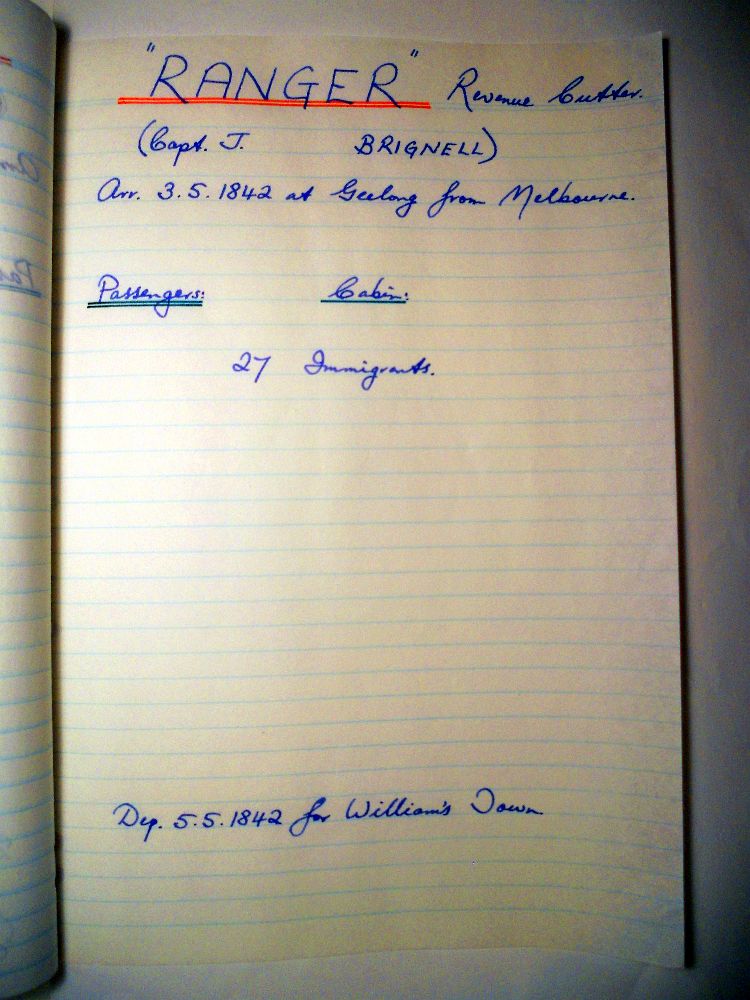 "RANGER" Revenue Cutter.
(Capt. J. BRIGNELL)
Arr. 3.5.1842 at Geelong from Melbourne.
Passengers: Cabin:
27 Immigrants.
Dep. 5.5.1842 for William's Town